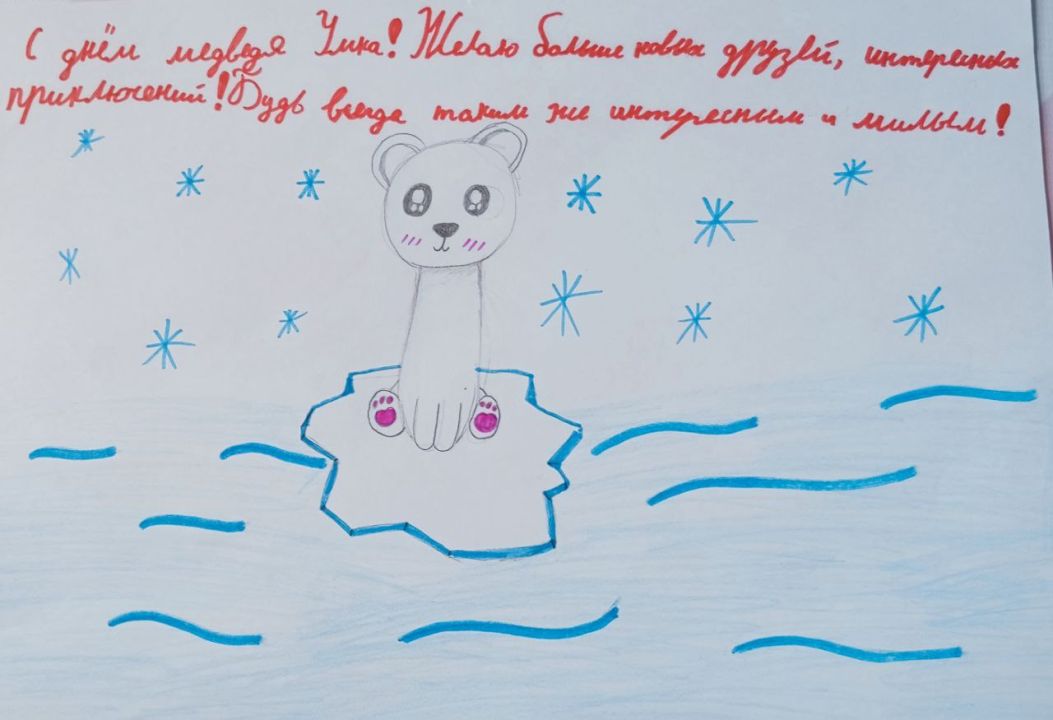 С днём медведя Умка! Желаю больше новых друзей, интересных
приключений! Будь всегда таким же интересным и милым!